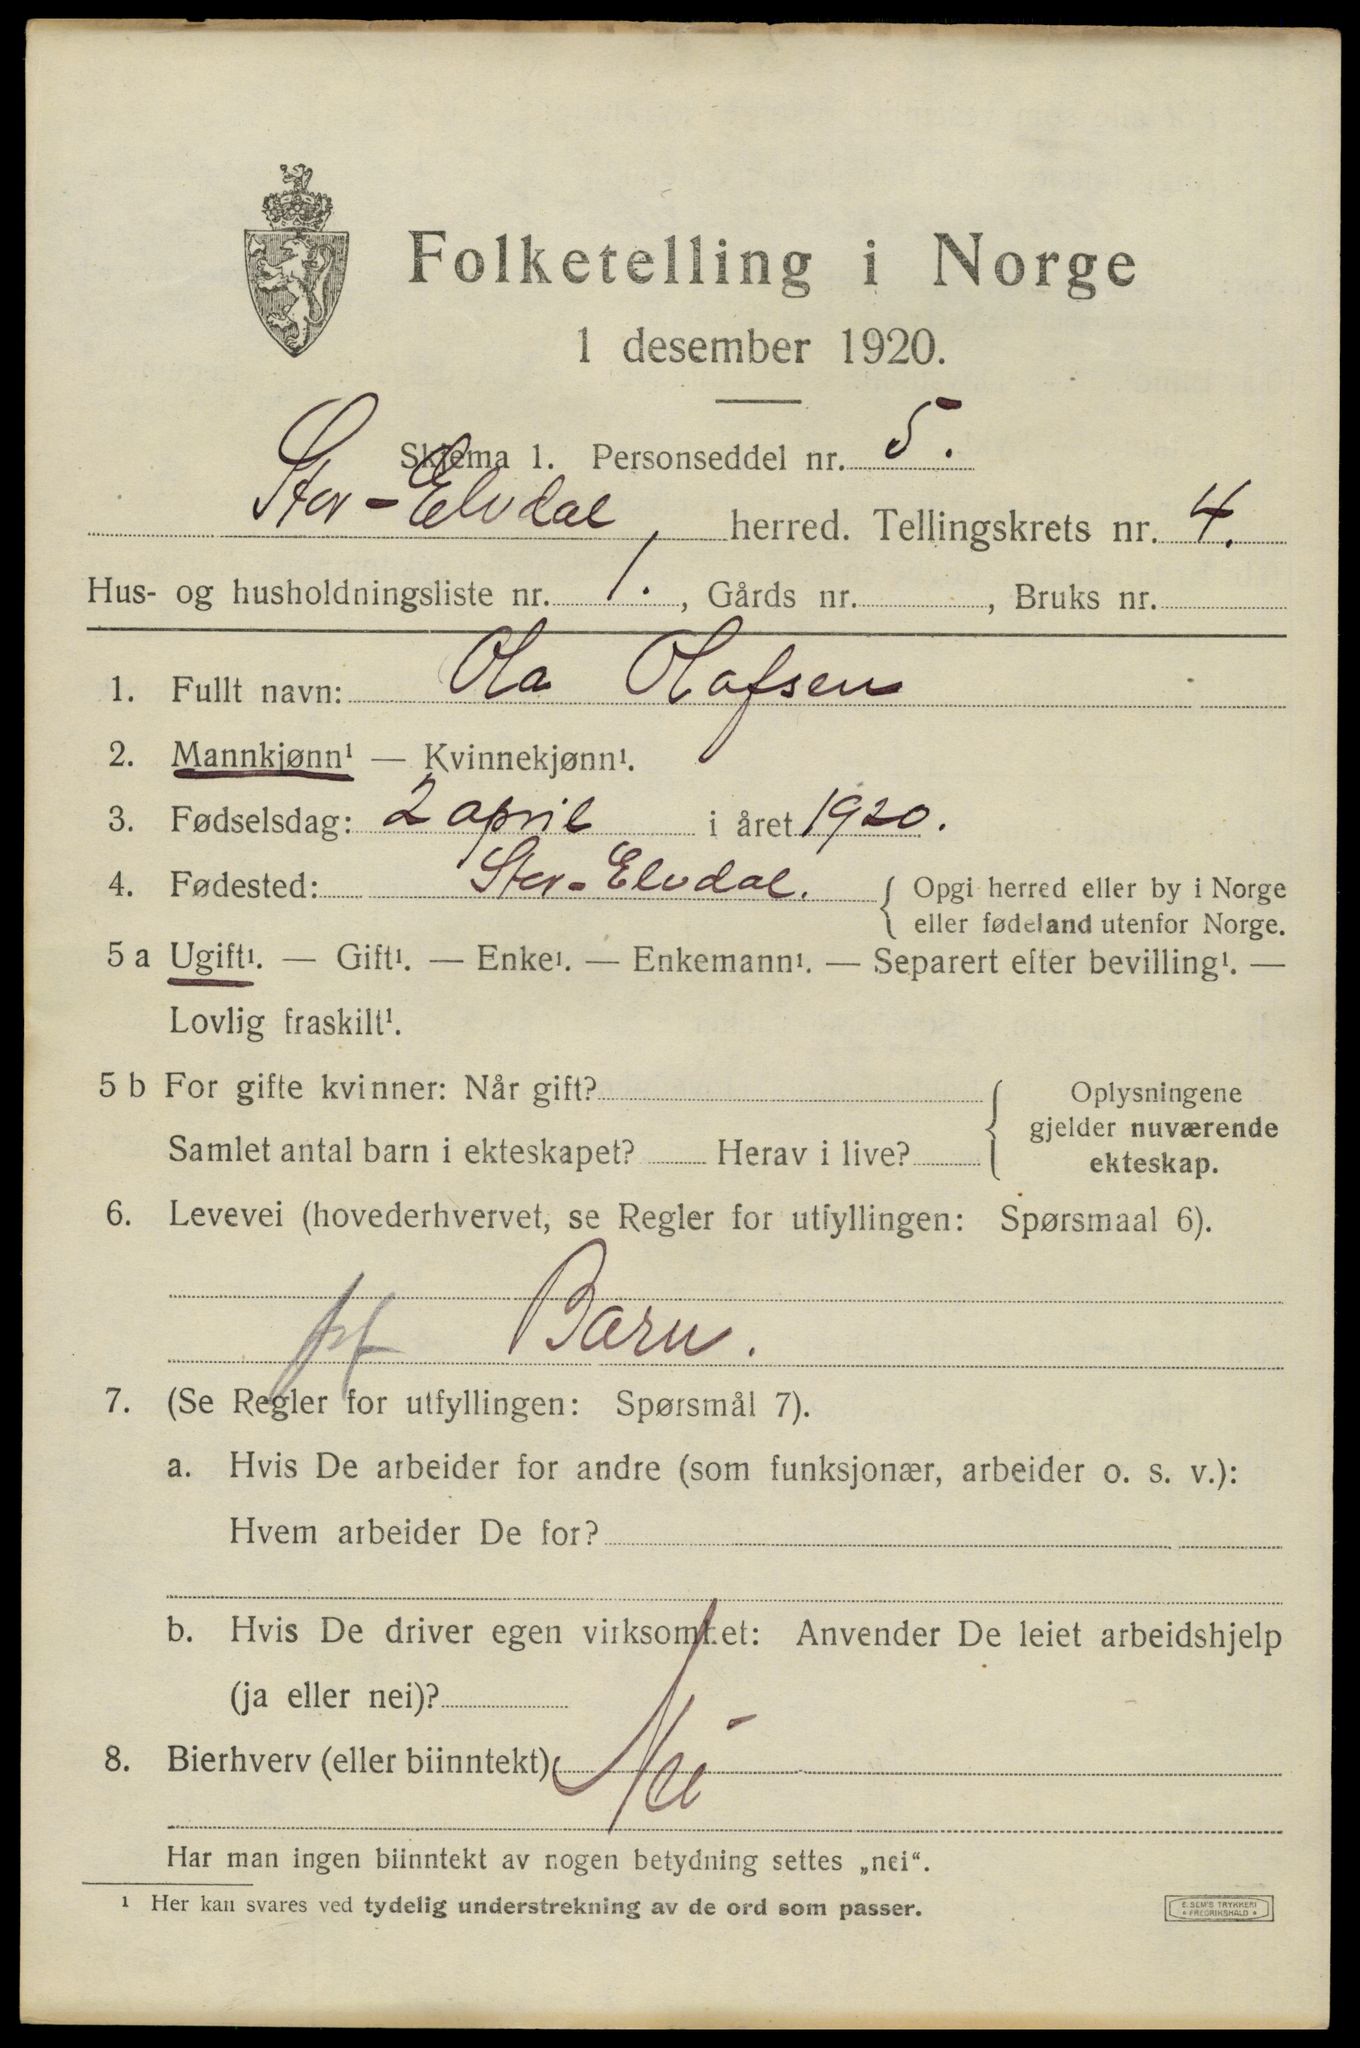 Folketelling i Norge
1 desember 1920.
Skjema 1. Personseddel nr. 5.
Stor-Elvdal herred. Tellingskrets nr. 4.
Hus- og husholdningsliste nr. 1., Gårds nr. , Bruks nr.
1. Fullt navn: Ola Olafsen
2. Mannkjønn¹ — Kvinnekjønn¹.
3. Fødselsdag: 2 april i året 1920.
4. Fødested: Stor-Elvdal. { Opgi herred eller by i Norge
eller fødeland utenfor Norge.
5 a Ugift¹. — Gift¹. — Enke¹. — Enkemann¹. — Separert efter bevilling¹. —
Lovlig fraskilt¹.
5 b For gifte kvinner: Når gift?
Samlet antal barn i ekteskapet? Herav i live?
{ Oplysningene
gjelder nuværende
ekteskap.
6. Levevei (hovederhvervet, se Regler for utfyllingen: Spørsmaal 6).
Barn.
7. (Se Regler for utfyllingen: Spørsmål 7).
a. Hvis De arbeider for andre (som funksjonær, arbeider o. s. v.):
Hvem arbeider De for?
b. Hvis De driver egen virksomhet: Anvender De leiet arbeidshjelp
(ja eller nei)?
8. Bierhverv (eller biinntekt) Nei
Har man ingen biinntekt av nogen betydning settes „nei“.
¹ Her kan svares ved tydelig understrekning av de ord som passer.
E. SEM'S TRYKKERI
FREDRIKSHALD